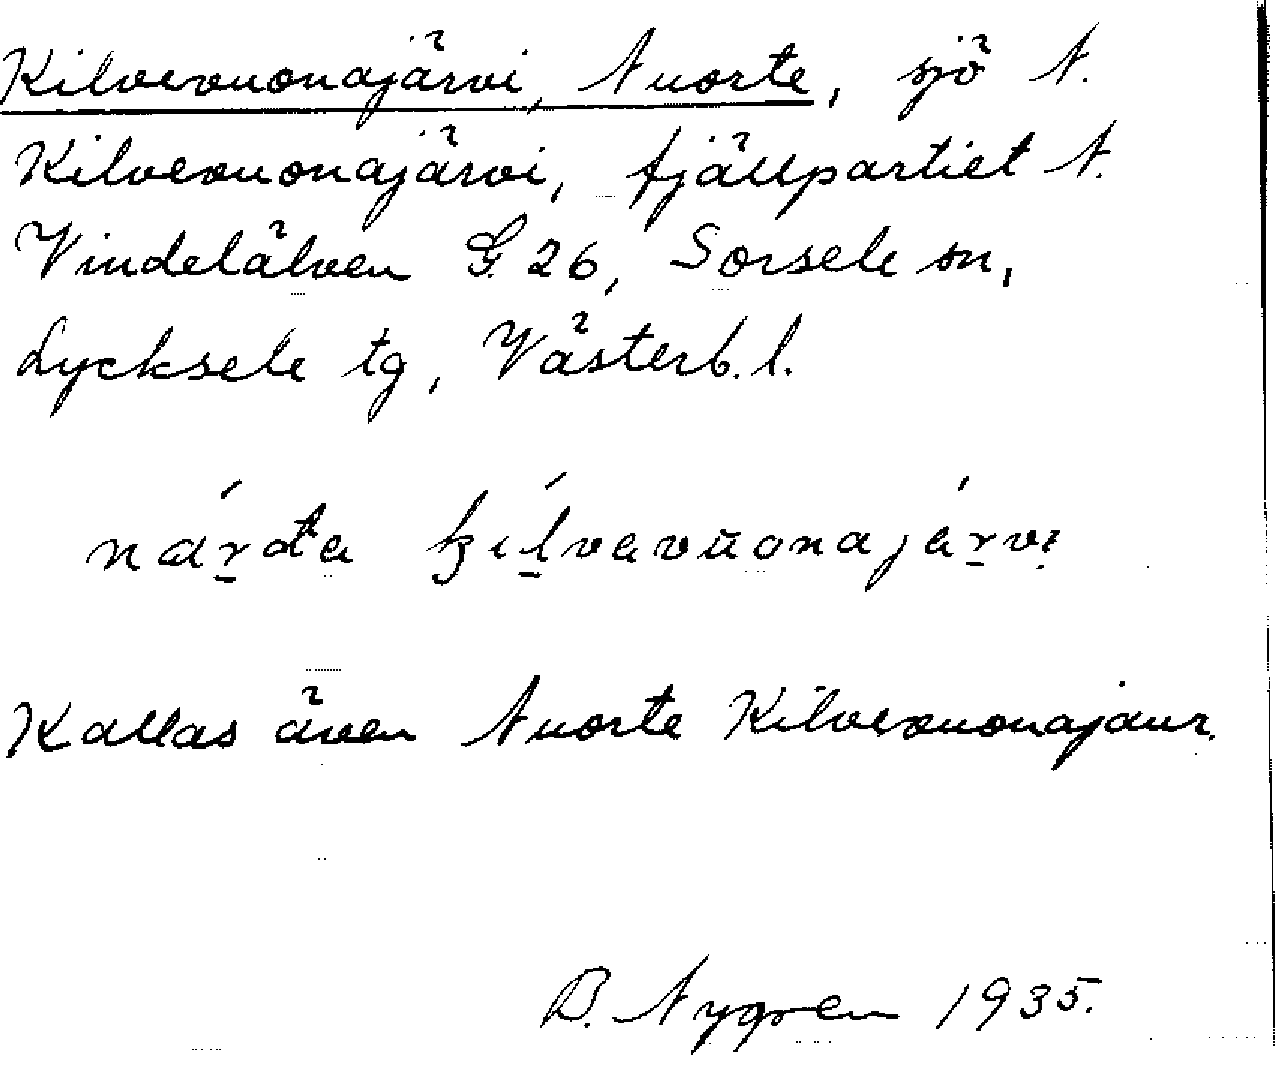 Kilvevuonajärvi, Nuorte, sjö N.
Kilvevuonajärvi, fjällpartiet N.
Vindelälven G. 26, Sorsele sn,
Lycksele tg, Västerb. l.
nár̠da ķíl̠vavŭonajár̠vi
Kallas även Nuorte Kilvevuonajaur.
B. Nygren 1935.